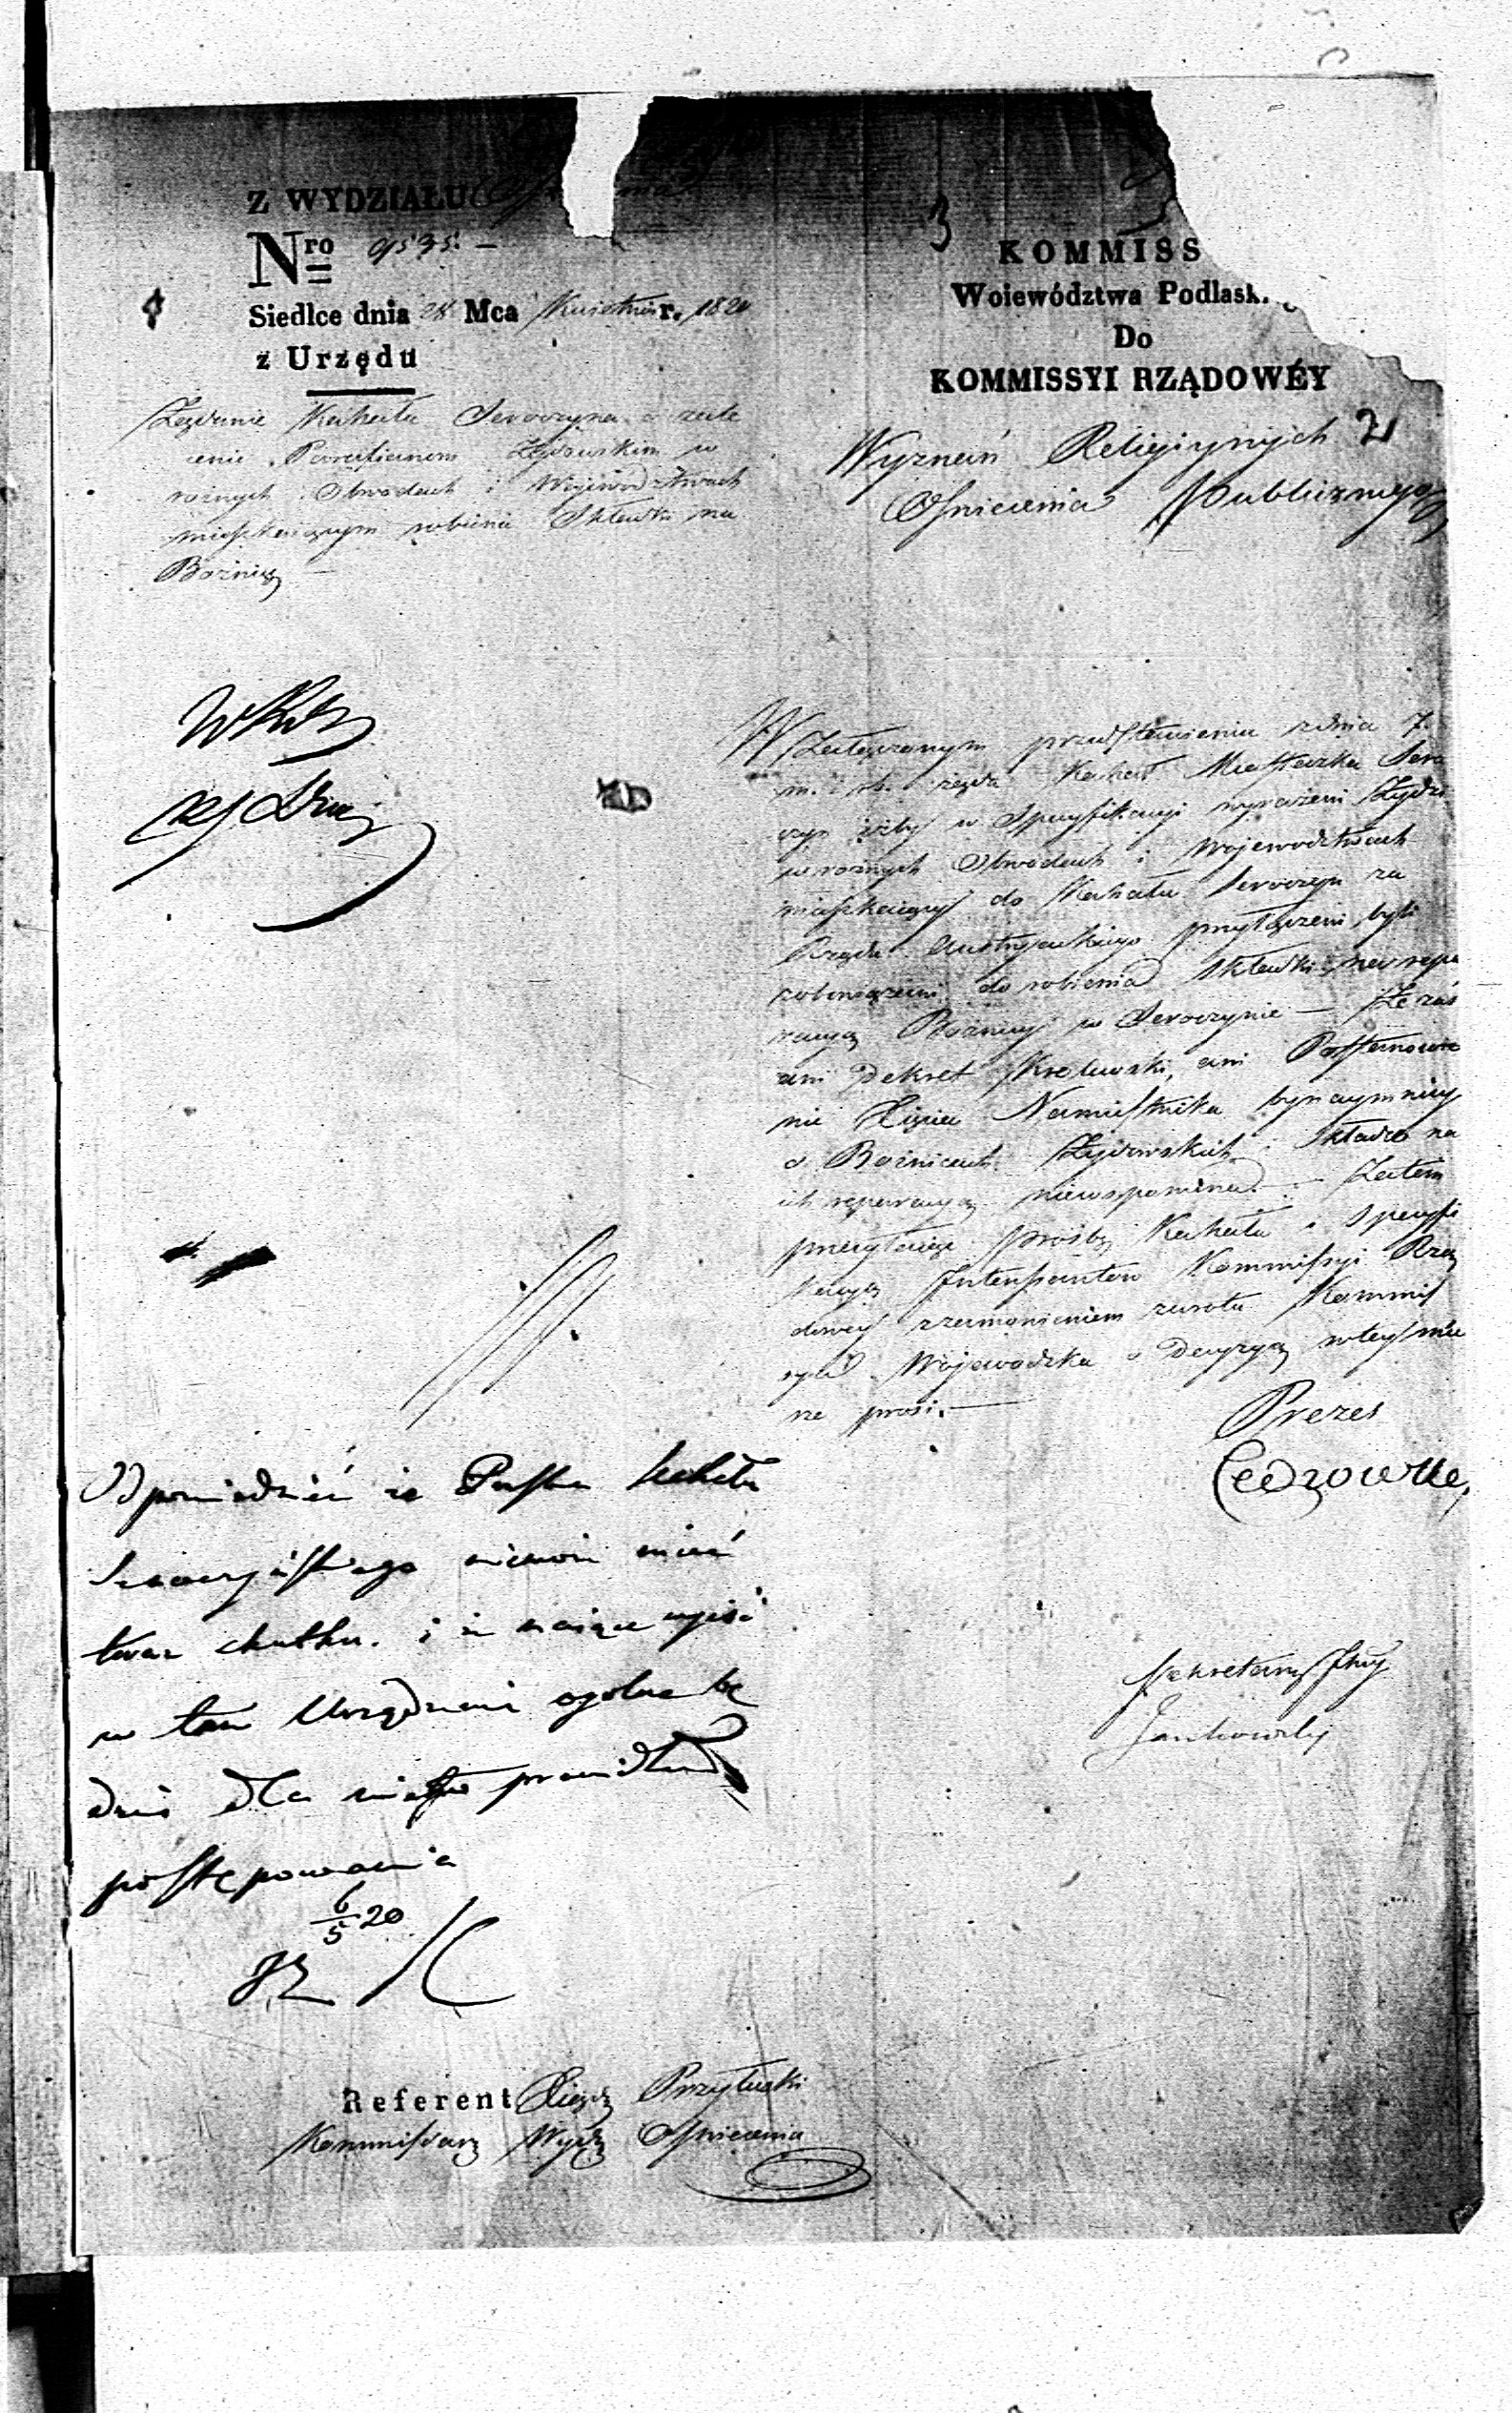 Z WYDZIAŁU
Nro 9535. —
Siedlce dnia 28 Mca Kwietnia r. 1820
z Urzędu
Żądanie Kahału Seroczyna o zale
cenie Parafianom Żydowskim w
roznych Obwodach i Woiewodztwach
mieszkaiącym robienia Składki na
Bożnicę —
3
KOMMISS
Woiewództwa Podlask
Do
KOMMISSYI RZĄDOWÉY
Wyznań Religiynych
2
Oświecenia Publicznego
W Załączonym przedstawieniu z dnia 7.
m. i r. b. żąda Kahał Miasteczka Sero
czyn iżby w Specyfikacyi wyrażeni Żydzi
w roznych Obwodach i Woiewodztwach
mieszkaiący do Kahału Seroczyn za
Rządu Austryackiego przyłączeni, byli
zobowiązani do robienia Składki na repa
racyą Bożnicy w Seroczynie — Że zaś
ani Dekret Krolewski, ani Postanowie
nie Xięcia Namiestnika bynaymniey
o Bożnicach Żydowskich i Składce na
ich reparacyą niewspomina. — Zatem
przesyłaiąc prośbę Kahału i Specyfi
kacyą Kommissyi Rzą
dowey z zamowieniem zwrotu Kommis
sya Woiewodzka o Decyzyą w tey mie
rze prosi. —
Prezes
Sekretarz Jlny
Jankowski
Odpowiedzieć że Prośba Kahału
Seroczyńskiego niemoże mieć
teraz skutku. i że maiące wyiść
w tem Urządzenie ogolne bę
dzie dla niego prawidłem
postępowania
6/5 20
Referent Xiądz Przyłuski
Kommissarz Wydz Oświecenia